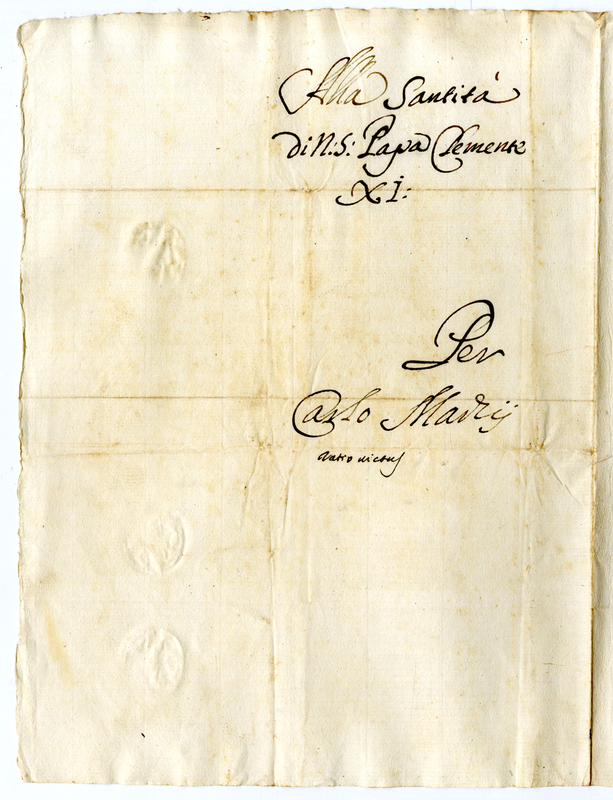 Alla Santità
di N: S: Papa Clemente
XI:
Per
Carlo